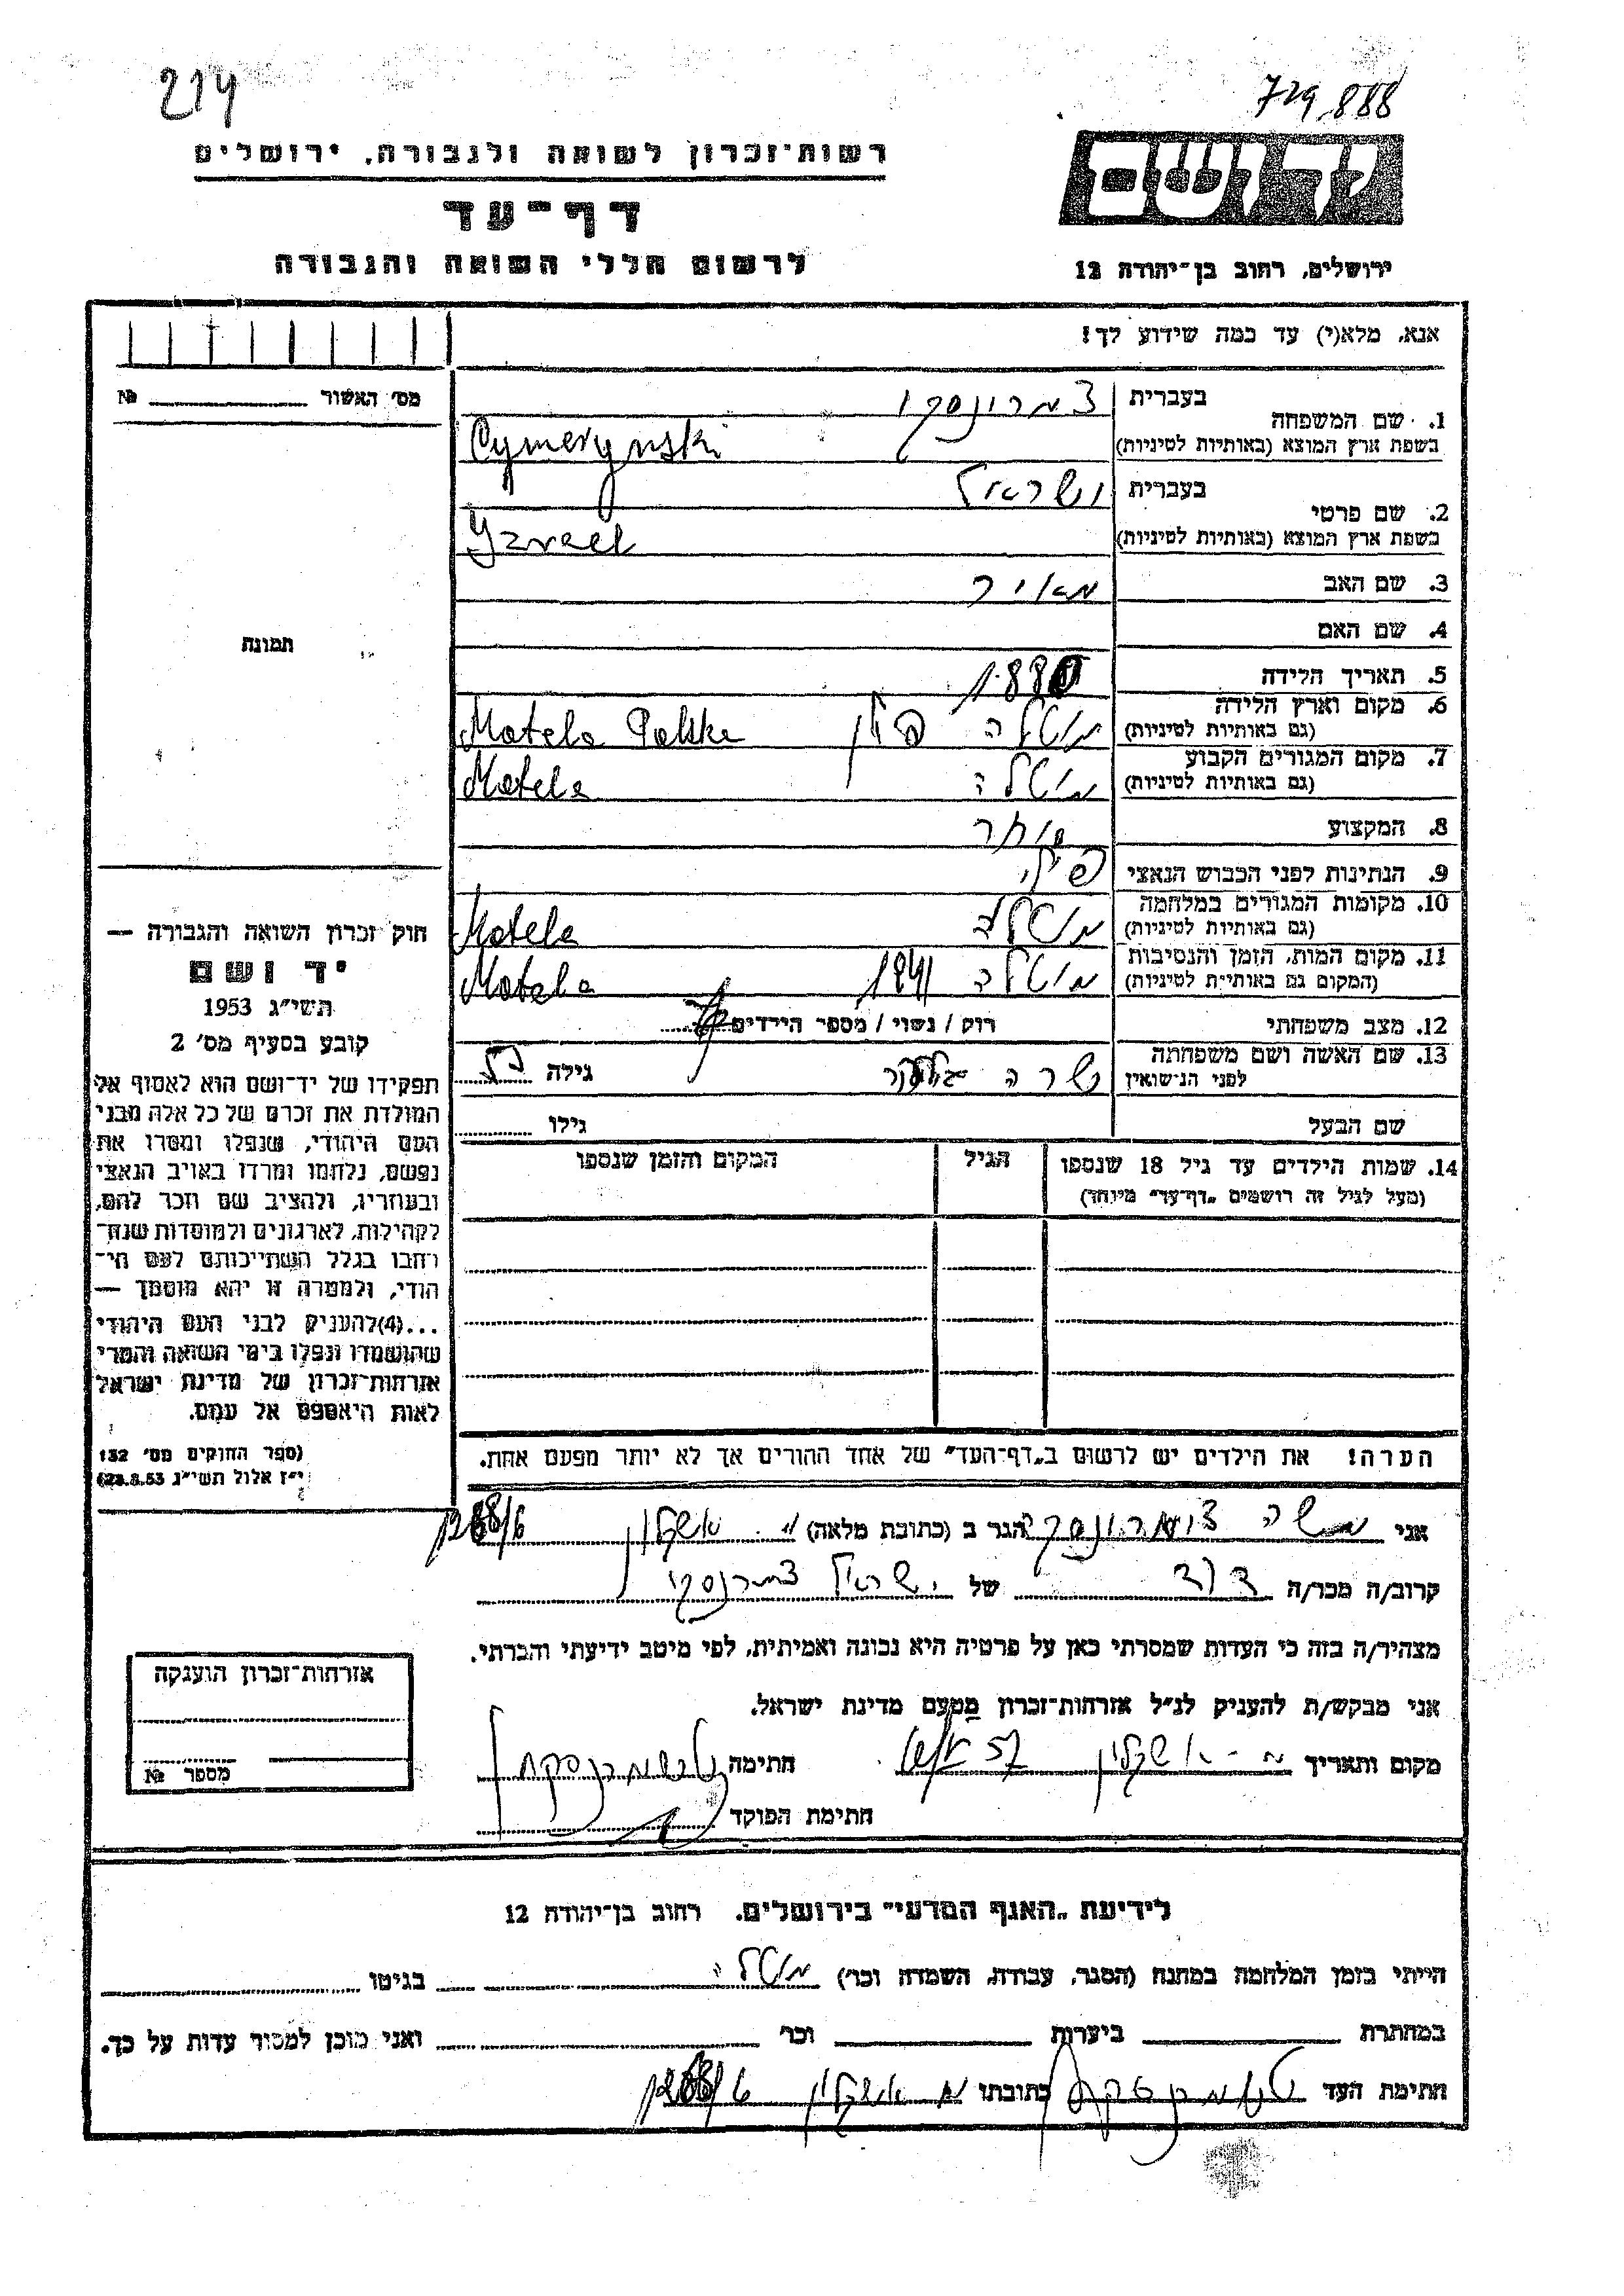 214
729,888
רשות־זכרון לשואה ולגבורה, ירושלים
יד ושם
דף־עד
לרשום חללי השואה והגבורה
ירושלים, רחוב בן־יהודה 12
אנא, מלא(י) עד כמה שידוע לך!
מס׳ האשור № 
1. שם המשפחה בעברית צמרינסקי
בשפת ארץ המוצא (באותיות לטיניות) Cymerynski
2. שם פרטי בעברית ישראל
בשפת ארץ המוצא (באותיות לטיניות) Yzrael
3. שם האב מאיר
4. שם האם
5. תאריך הלידה 1880
6. מקום וארץ הלידה (גם באותיות לטיניות) מוטלה פולין Motela Polska
7. מקום המגורים הקבוע (גם באותיות לטיניות) מוטלה Motela
8. המקצוע סוחר
9. הנתינות לפני הכבוש הנאצי פולני
10. מקומות המגורים במלחמה (גם באותיות לטיניות) מוטלה Motela
11. מקום המות, הזמן והנסיבות (המקום גם באותיות לטיניות) מוטלה 1941 Motela
12. מצב משפחתי רוק / נשוי / מספר הילדים
13. שם האשה ושם משפחתה לפני הנישואין שרה גילה
שם הבעל גילו
14. שמות הילדים עד גיל 18 שנספו (מעל לגיל זה רושמים „דף־עד״ מיוחד) הגיל המקום והזמן שנספו
תמונה
חוק זכרון השואה והגבורה —
יד ושם
תשי״ג 1953
קובע בסעיף מס׳ 2
תפקידו של יד־ושם הוא לאסוף אל
המולדת את זכרם של כל אלה מבני
העם היהודי, שנפלו ומסרו את
נפשם, נלחמו ומרדו באויב הנאצי
ובעוזריו, ולהציב שם וזכר להם,
לקהילות, לארגונים ולמוסדות שנח־
רבו בגלל השתייכותם לעם הי־
הודי, ולמטרה זו יהא מוסמך —
...(4)להעניק לבני העם היהודי
שהושמדו ונפלו בימי השואה והמרי
אזרחות־זכרון של מדינת ישראל
לאות היאספם אל עמם.
(ספר החוקים מס׳ 132
י״ז אלול תשי״ג 28.8.53)
הערה! את הילדים יש לרשום ב„דף־העד״ של אחד ההורים אך לא יותר מפעם אחת.
אני משה צימרינסקי הגר ב (כתובת מלאה) אשקלון
קרוב/ה מכר/ה דוד של ישראל צמרינסקי
מצהיר/ה בזה כי העדות שמסרתי כאן על פרטיה היא נכונה ואמיתית, לפי מיטב ידיעתי והכרתי.
אני מבקש/ת להעניק לנ״ל אזרחות־זכרון מטעם מדינת ישראל.
מקום ותאריך אשקלון חתימה
חתימת הפוקד
אזרחות־זכרון הוענקה
מספר №
לידיעת „האגף המדעי״ בירושלים. רחוב בן־יהודה 12
הייתי בזמן המלחמה במחנה (הסגר, עבודה, השמדה וכו׳) מוטלה בגיטו
במחתרת ביערות וכו׳ ואני מוכן למסור עדות על כך.
חתימת העד כתובתו אשקלון